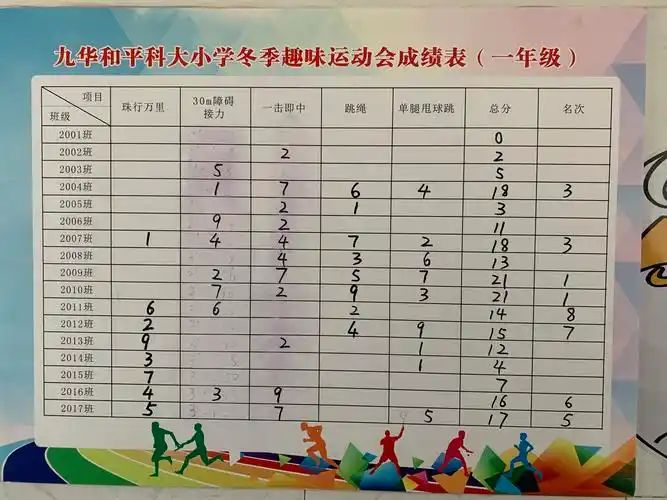 九华和平科大小学冬季趣味运动会成绩表（一年级）
项目 班级 珠行万里 30m障碍接力 一击即中 跳绳 单腿甩球跳 总分 名次
2001班 0
2002班 2 2
2003班 5 5
2004班 1 7 6 4 18 3
2005班 2 1 3
2006班 9 2 11
2007班 1 4 4 7 2 18 3
2008班 4 3 6 13
2009班 2 7 5 7 21 1
2010班 7 2 9 3 21 1
2011班 6 6 2 14 8
2012班 2 4 9 15 7
2013班 9 2 1 12
2014班 3 1 4
2015班 7 7
2016班 4 3 9 16 6
2017班 5 7 5 17 5